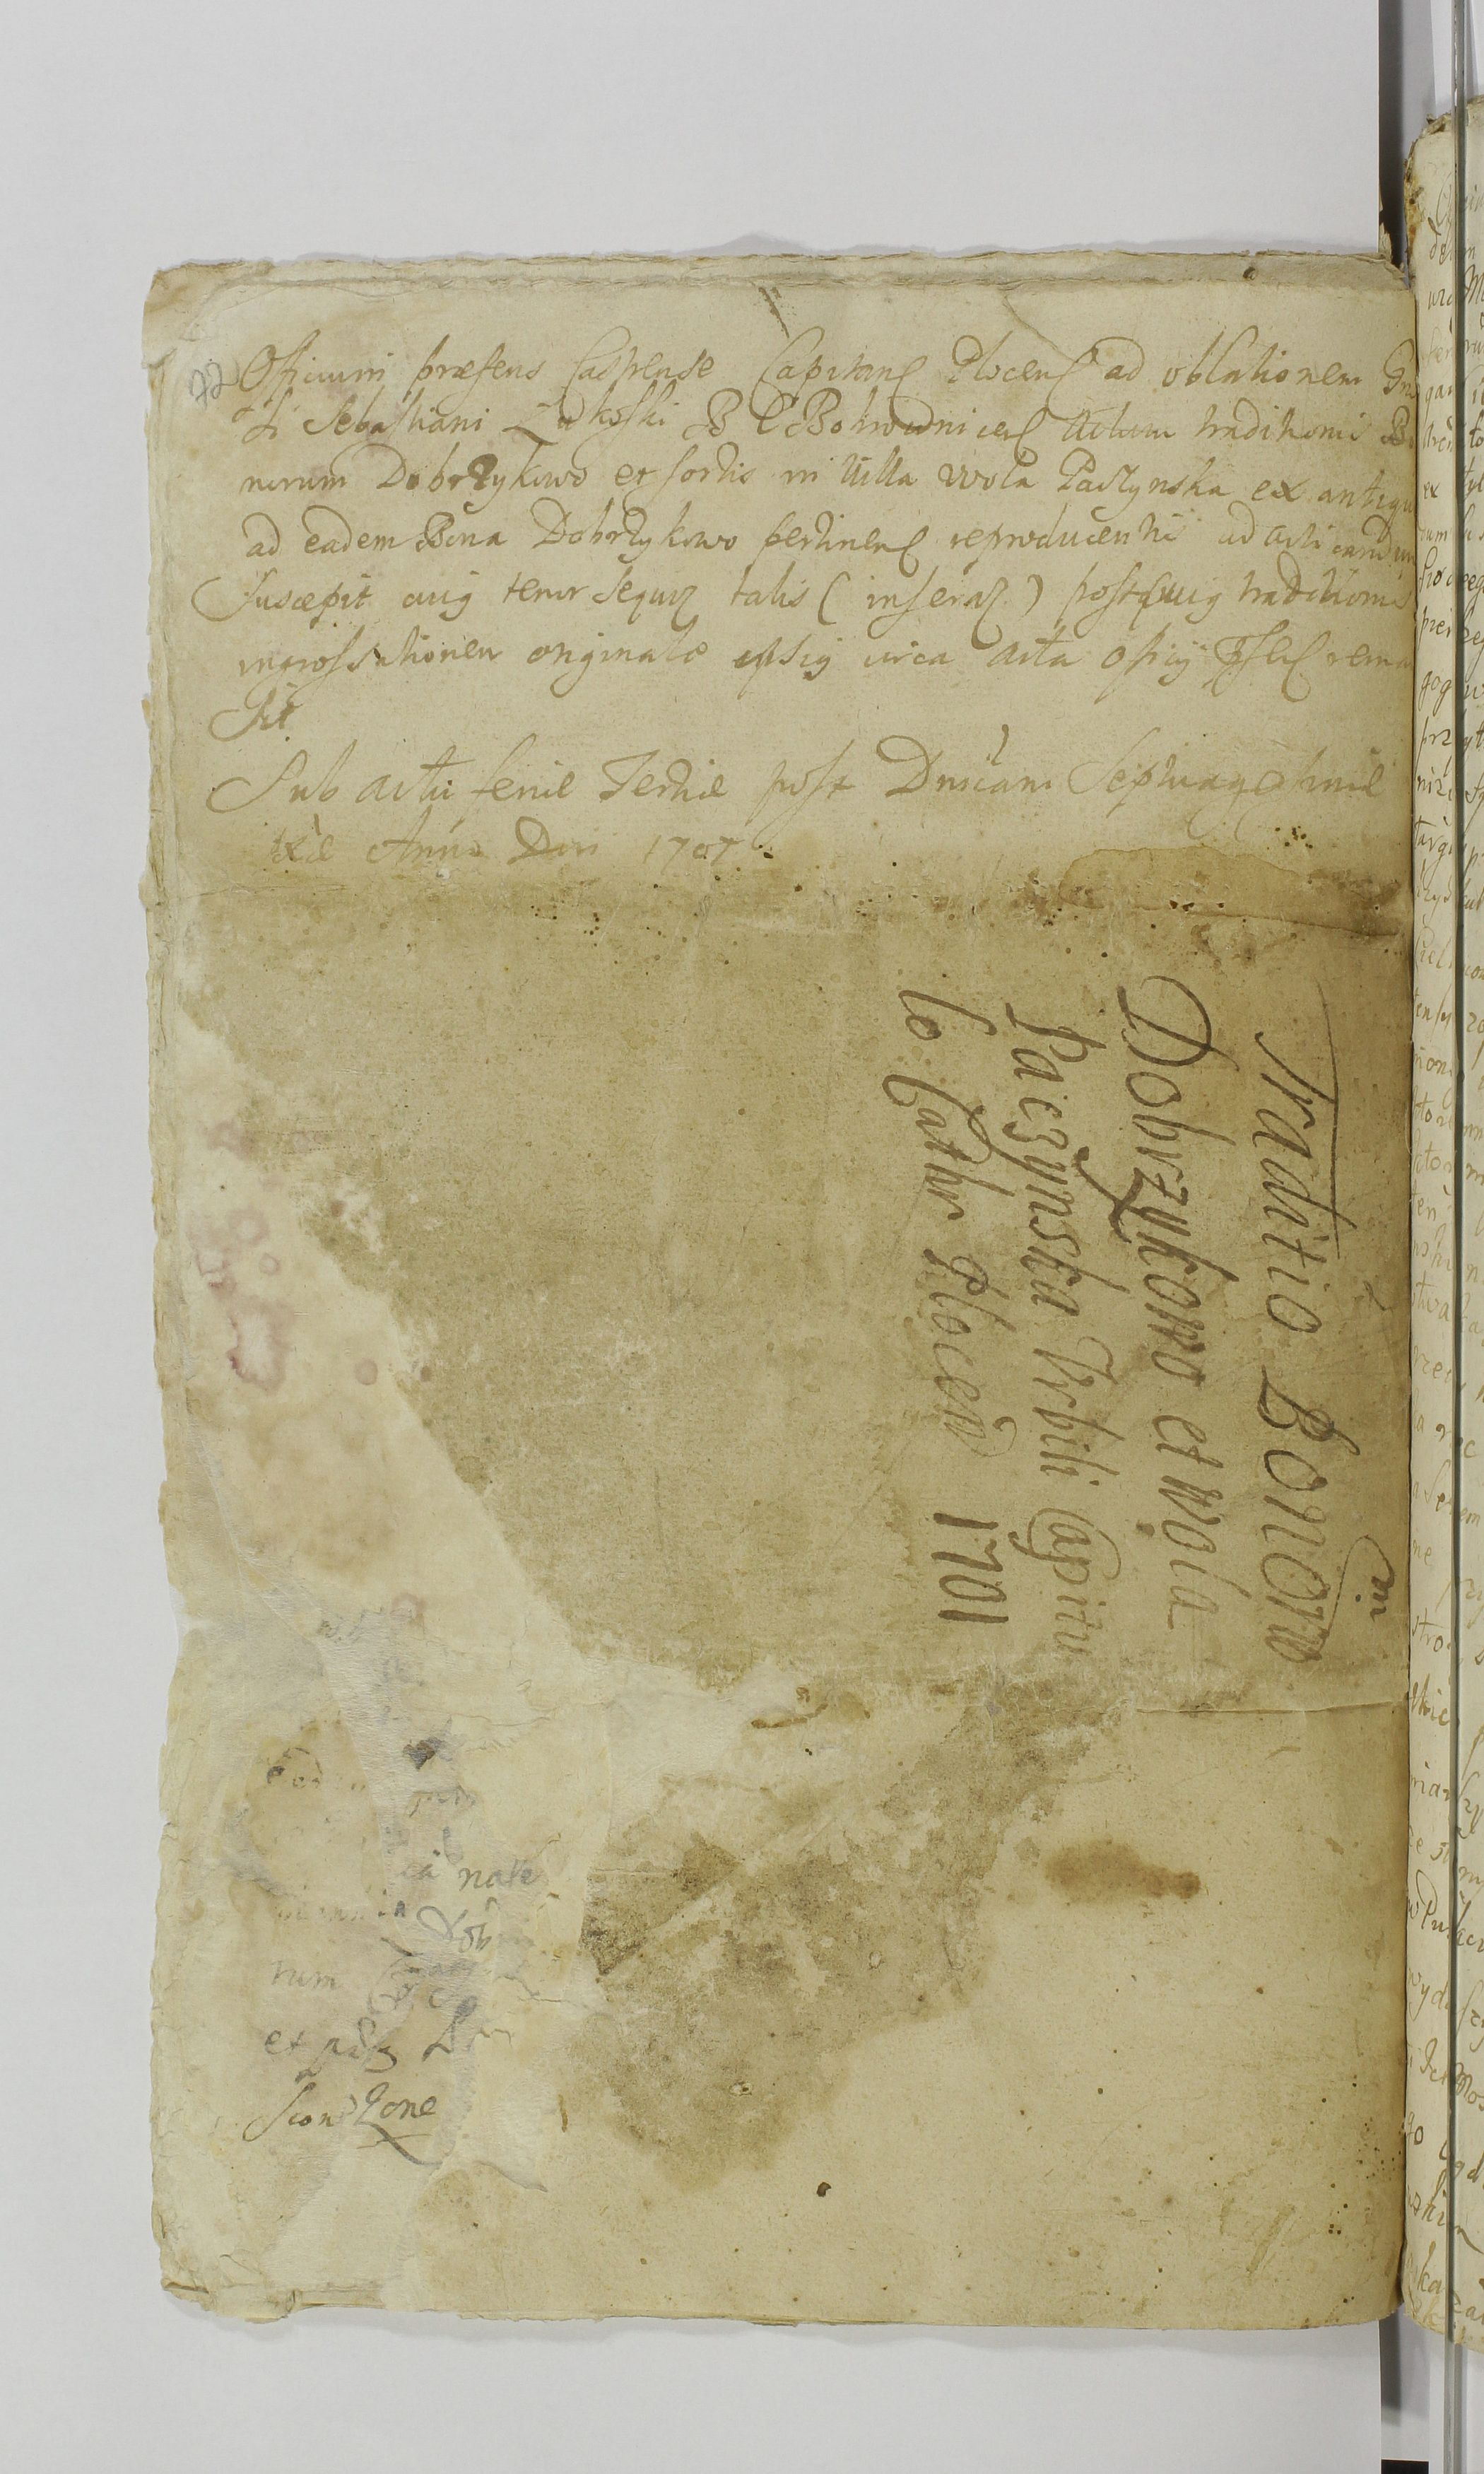 Officium præsens Castrense Capitan Plocen ad oblationem Gn
di Sebastiani Zukoski B C Bohrodnicen Actum traditionis Bo
norum Dobrzykowo et sortis in Villa Wola Paczynska ex antiqu
ad eadem Bona Dobrzykowo pertinen reproducentis ad acticandum
suscepit cuig tenor sequiz talis (inseraz) post cuig traditionis
ingrossationem originale ipsig circa acta officij reman
sit
Sub actu feriæ Tertiæ post Dnicam Septuagesimæ
Anno Dni 1707
Traditio Bonorum
Dobrzykowo et Wola
Paczynska Vrbili Capitu
lo Cathr Plocen 1701
nate
rum
et